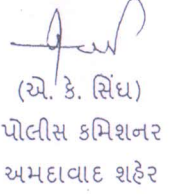 (એ. કે. સિંઘ)
પોલીસ કમિશનર
અમદાવાદ શહેર